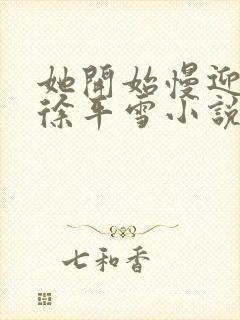 她開始慢迎
徐平雪小說
七和香